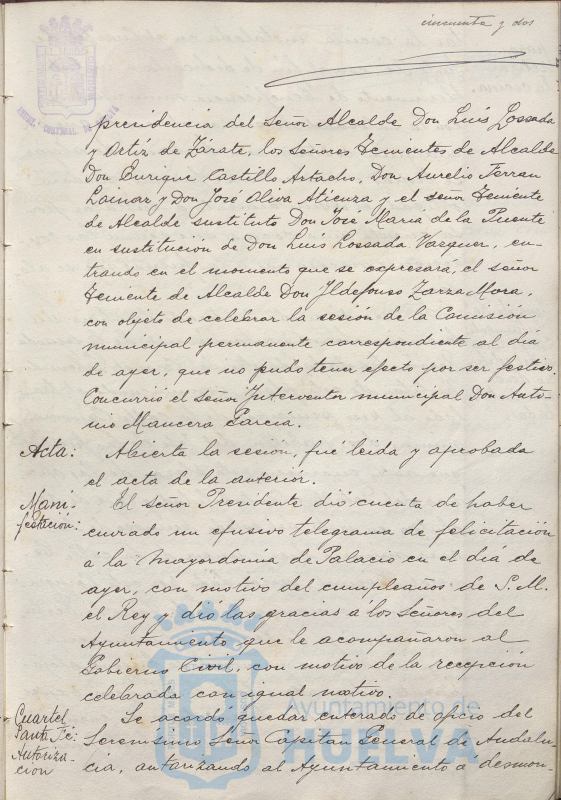 cincuenta y dos
presidencia del Señor Alcalde Don Luis Lossada
y Ortíz de Zárate, los Señores Tenientes de Alcalde
Don Enrique Castillo Artacho, Don Aurelio Ferran
Lainaz y Don José Oliva Atienza y el señor Teniente
de Alcalde sustituto Don José Maria de la Puente
en sustitución de Don Luis Lossada Vazquez, en-
trando en el momento que se expresará, el señor
Teniente de Alcalde Don Yldefonso Zarza Mora,
con objeto de celebrar la sesión de la Comisión
municipal permanente correspondiente al día
de ayer, que no pudo tener efecto por ser festivo.
Concurrió el señor Ynterventor municipal Don Anto-
nio Mancera García.
Acta: Abierta la sesión, fué leida y aprobada
el acta de la anterior.
Mani- El señor Presidente dió cuenta de haber
festación: enviado un efusivo telegrama de felicitación
á la Mayordomía de Palacio en el día de
ayer, con motivo del cumpleaños de S. M.
el Rey y dió las gracias á los Señores del
Ayuntamiento que le acompañaron al
Gobierno Civil, con motivo de la recepción
celebrada con igual motivo.
Cuartel Se acordó quedar enterado de oficio del
Santa Fé: Serenisimo Señor Capitan General de Andalu-
Autoriza- cia, autorizando al Ayuntamiento á desmon-
cion
Ayuntamiento de
HUELVA